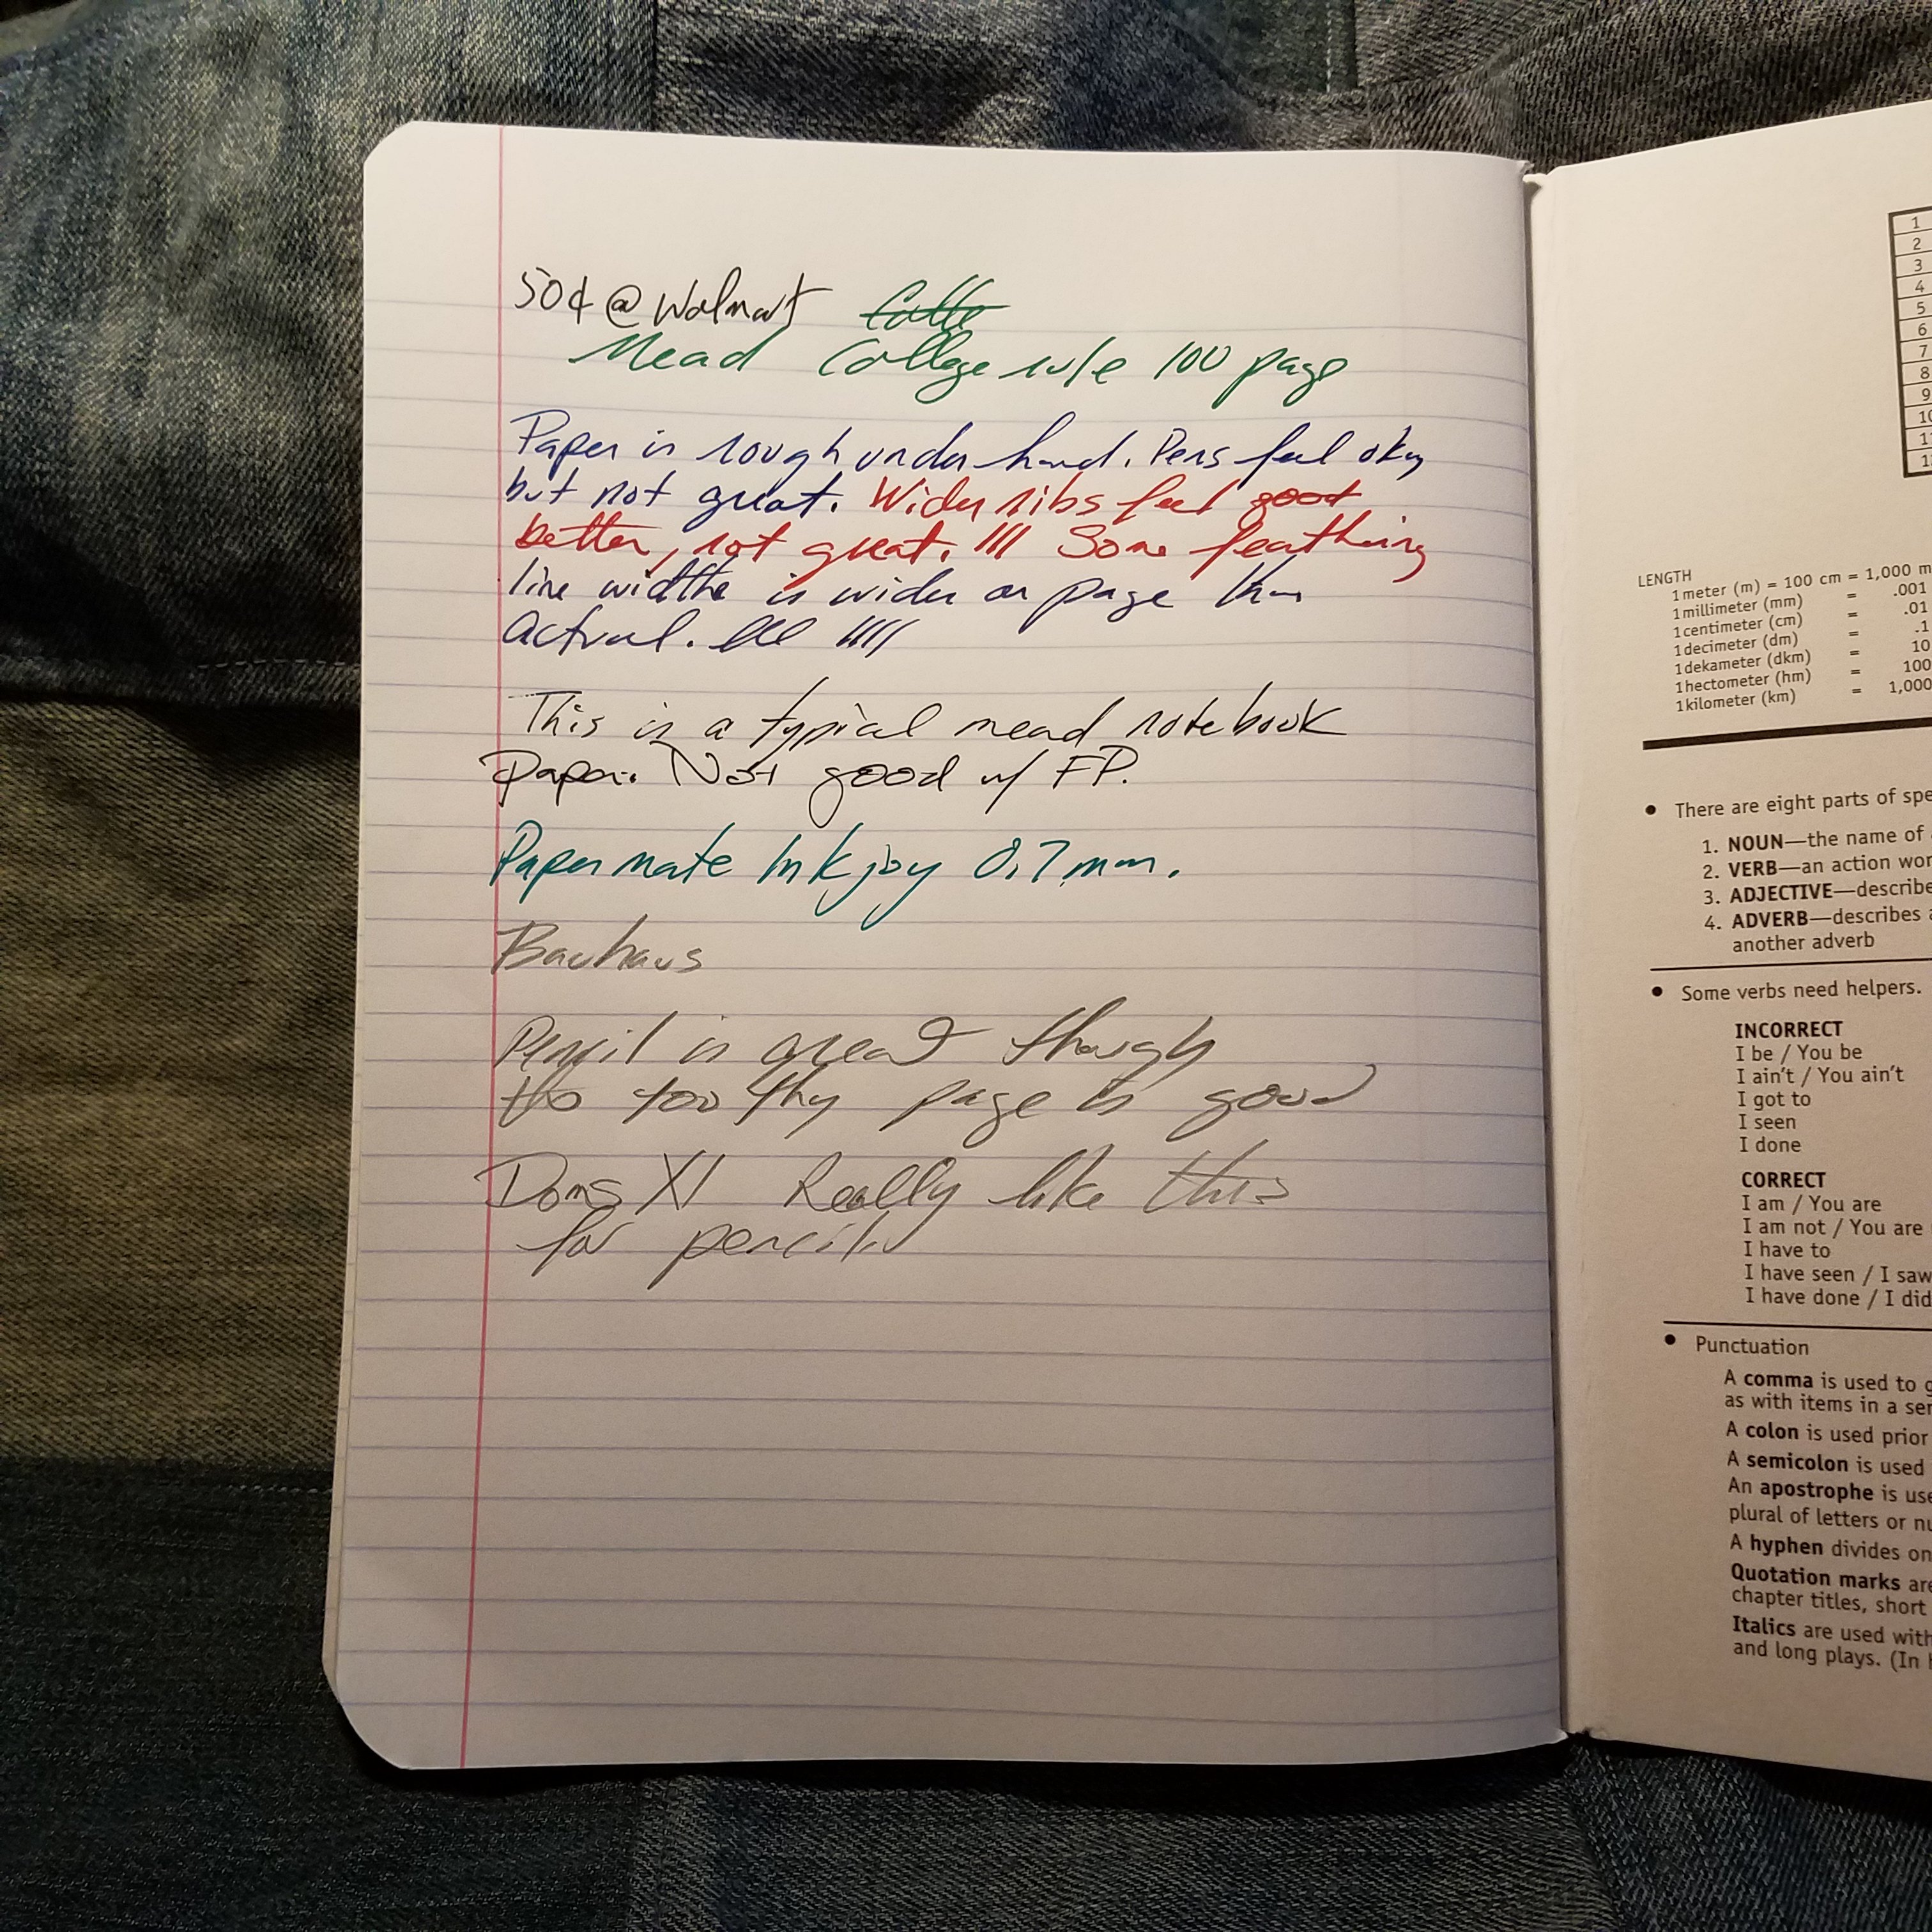 50¢ @ Walmart
Mead College rule 100 page
Paper is rough under hand. Pens feel okay
but not great. Wider nibs feel good
better, not great. III Some feathering
line widths is wider on page than
Actual. lll IIII
This is a typical mead notebook
paper. Not good w/ FP.
Papermate Inkjoy 0.7mm.
Bauhaus
Pencil is great though
the toothy page is good
Doms X1 Really like this
for pencil.
1
2
3
4
5
6
7
8
9
LENGTH
1 meter (m) = 100 cm = 1,000 m
1 millimeter (mm) = .001
1 centimeter (cm) = .01
1 decimeter (dm) = .1
1 dekameter (dkm) = 10
1 hectometer (hm) = 100
1 kilometer (km) = 1,000
• There are eight parts of spe
1. NOUN—the name of
2. VERB—an action wor
3. ADJECTIVE—describe
4. ADVERB—describes a
another adverb
• Some verbs need helpers.
INCORRECT
I be / You be
I ain't / You ain't
I got to
I seen
I done
CORRECT
I am / You are
I am not / You are
I have to
I have seen / I saw
I have done / I did
• Punctuation
A comma is used to
as with items in a ser
A colon is used prior
A semicolon is used
An apostrophe is use
plural of letters or nu
A hyphen divides on
Quotation marks are
chapter titles, short
Italics are used with
and long plays. (In